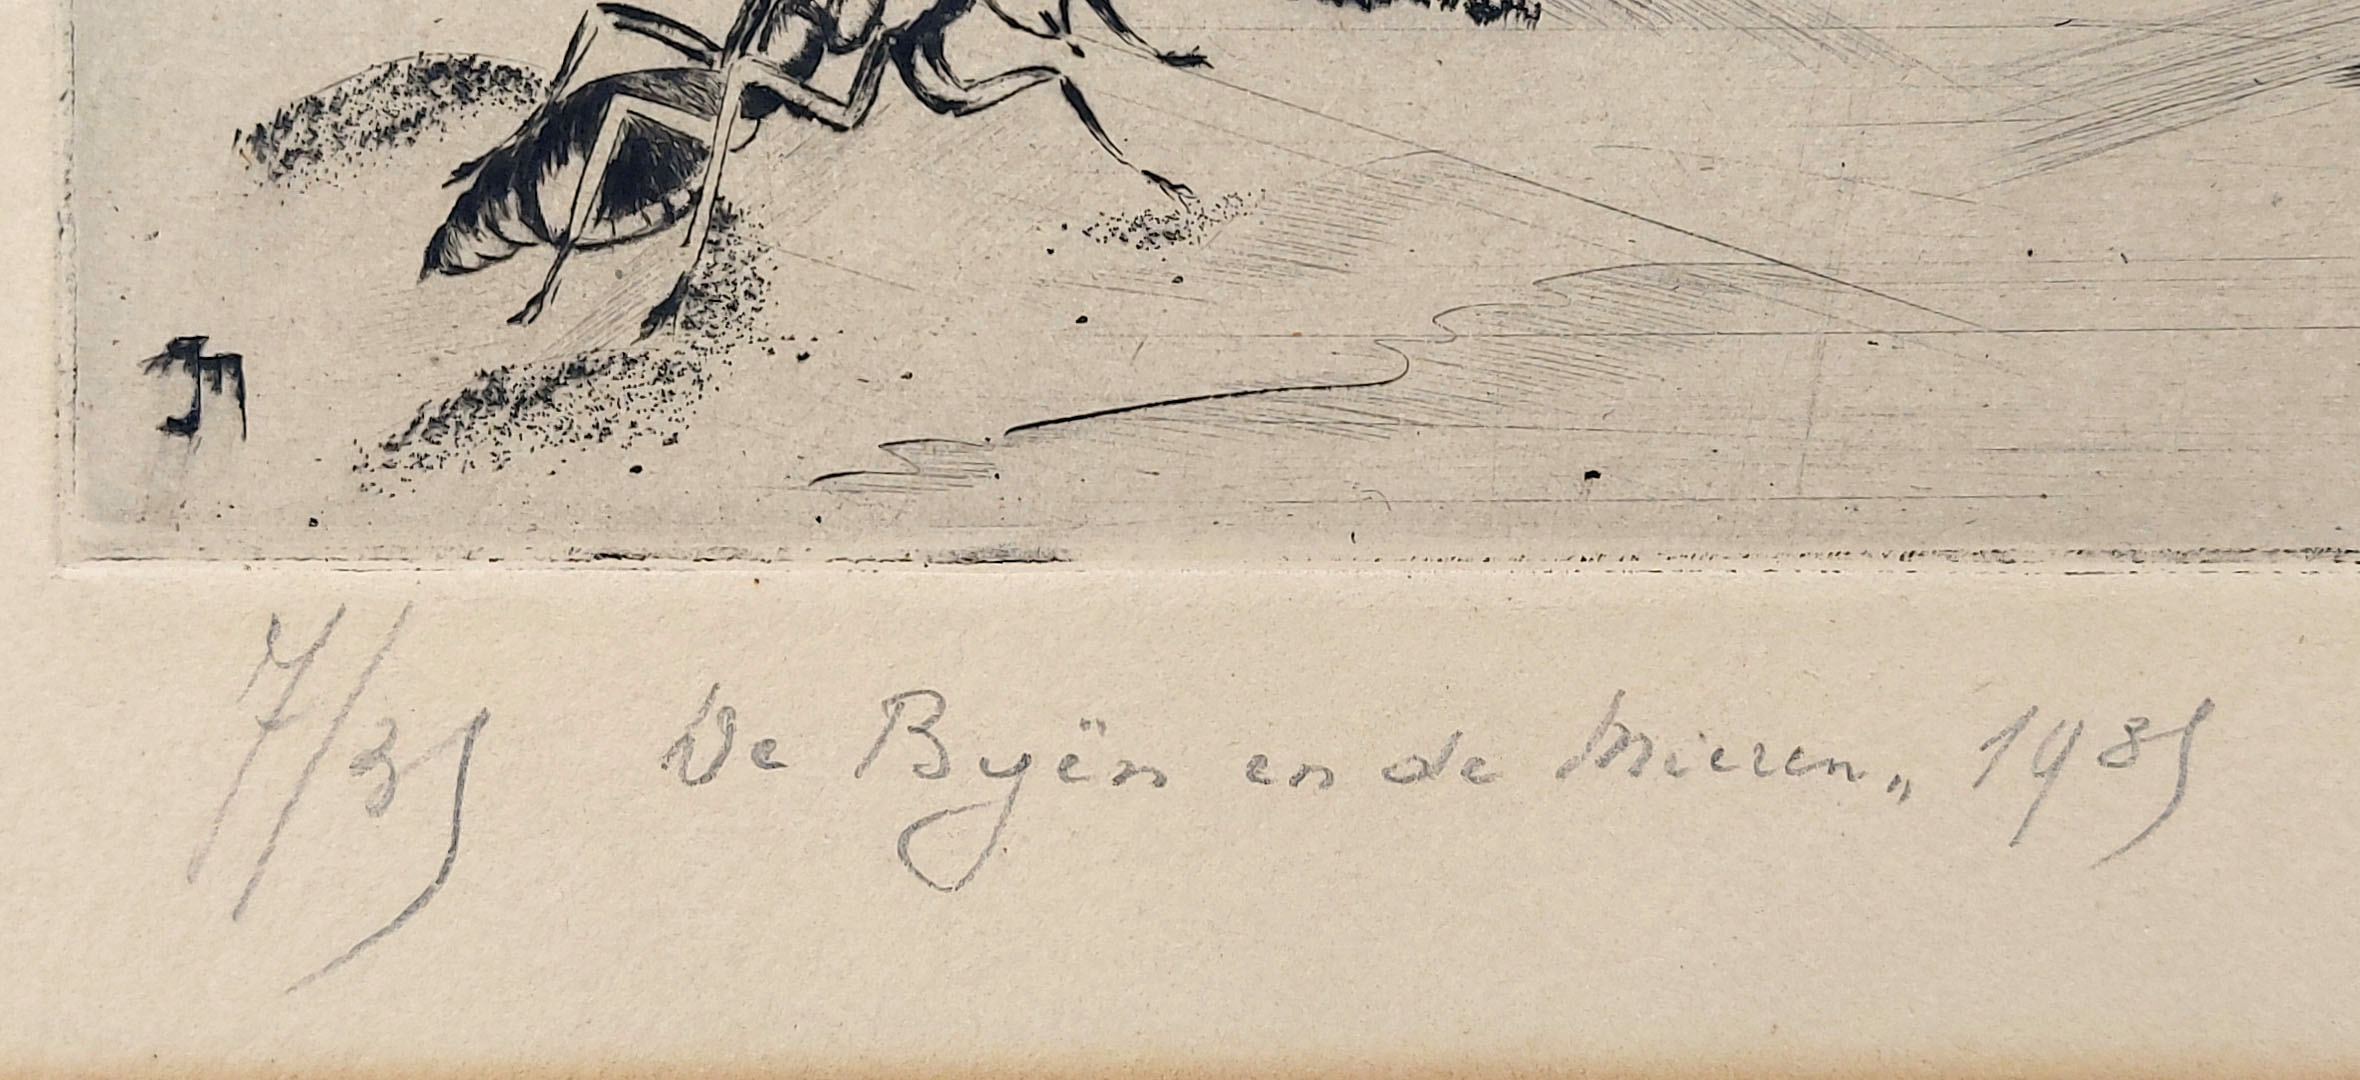 JM
7/35 De Byën en de Mieren„ 1935